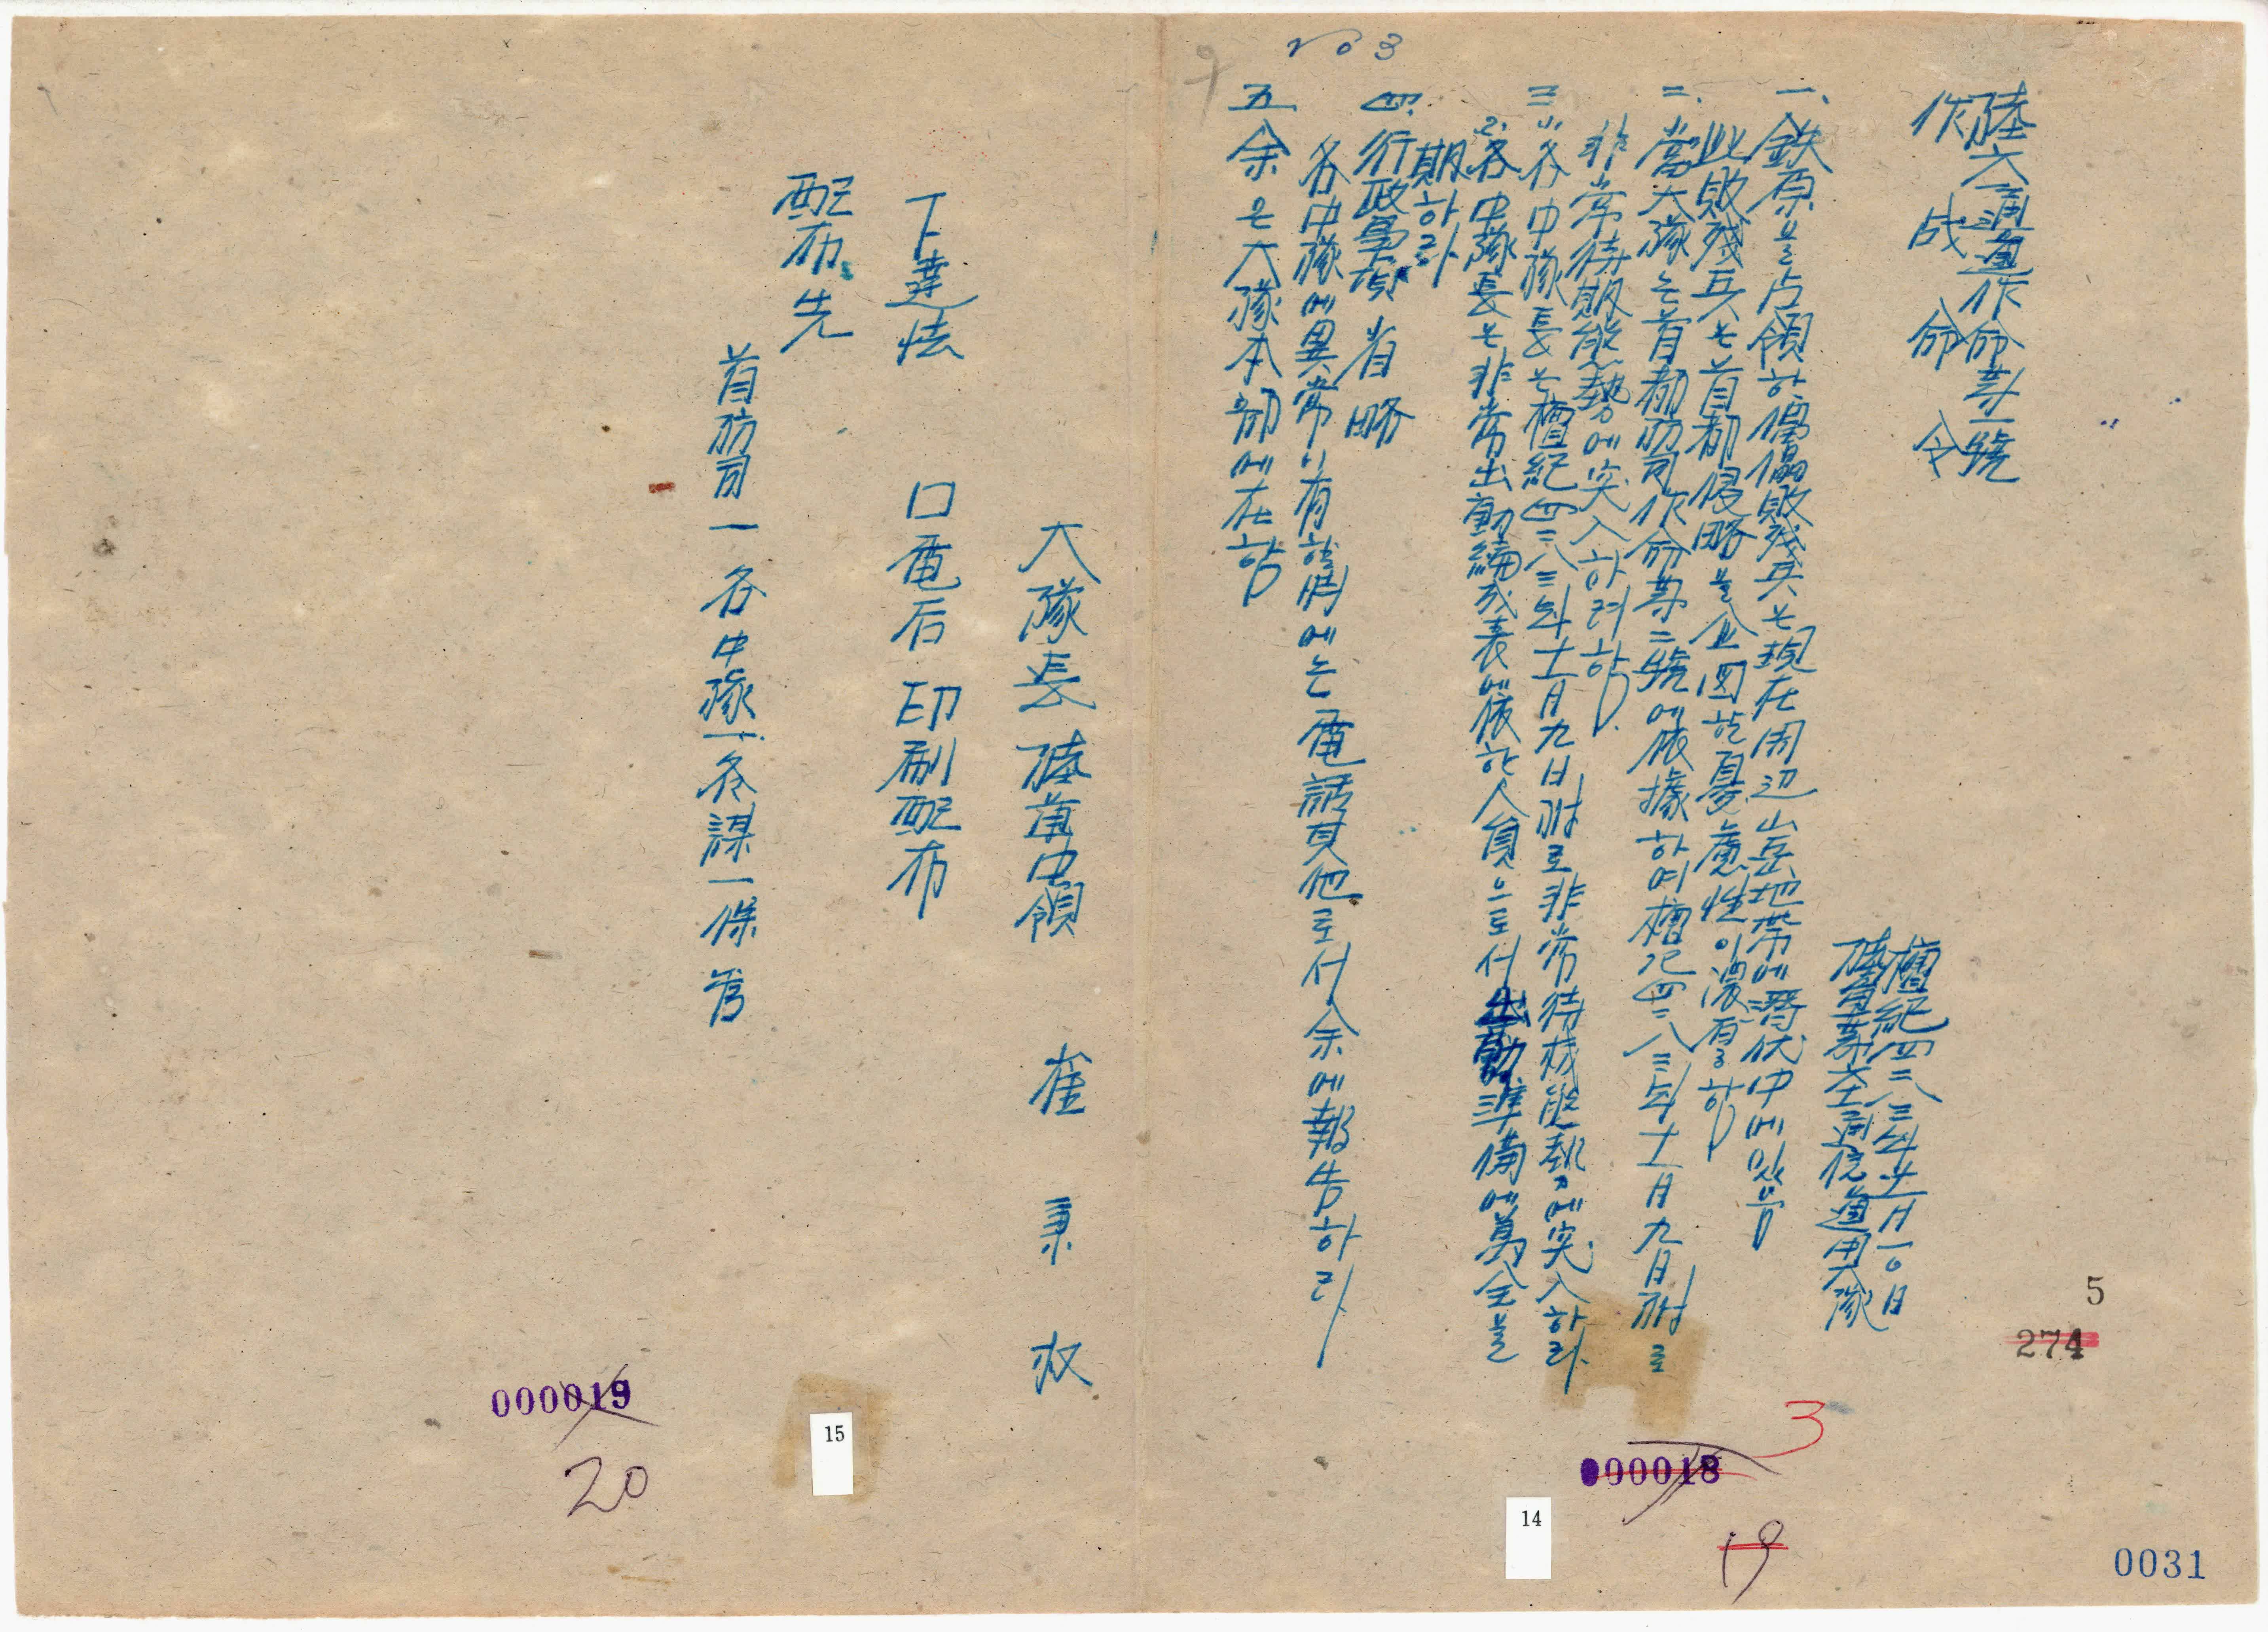 No 3
9
陸六通運作命第一號
作战命令
檀紀四二八三年十一月一〇日
陸軍第六通信運用大隊
一、鉄原을占領한傀儡敗残兵은現在周辺山岳地帯에潛伏中에있음
此敗残兵은首都侵略을企図한憂慮性이濃厚함
二、當大隊는首都防司作命第二號에依據하여檀紀四二八三年十一月九日附로
非常待期態勢에突入하려함.
三、1.各中隊長은檀紀四二八三年十一月九日附로非常待機態勢에突入하라.
2.各中隊長은非常出動編成表에依한人員으로서出動準備에萬全을
期하라
四、行政事項 省略
各中隊에異常이有할時에는電話其他로서余에報告하라.
五 余은大隊本部에在함
大隊長 陸軍中領 崔秉
下達法 口電后印刷配布
配布先
首防司一 各中隊一 各課一 保管
5
274
3
000018
19
14
0031
000019
20
15